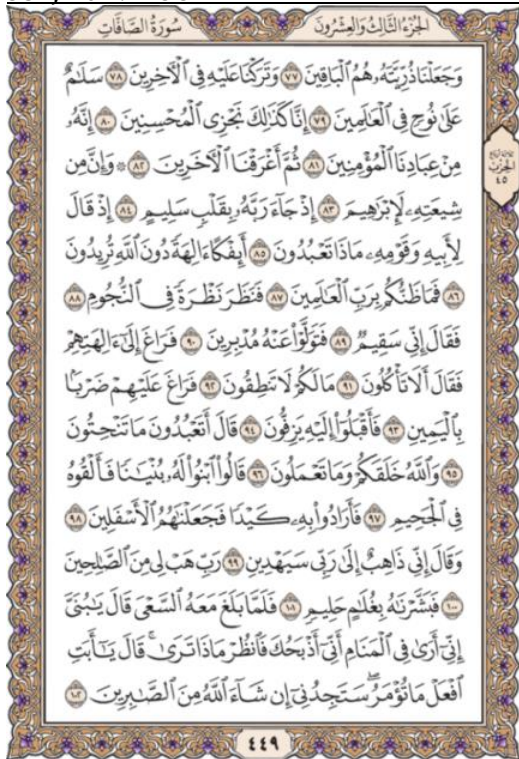 الجزء الثالث والعشرون
سورة الصافات
وَجَعَلْنَا ذُرِّيَّتَهُۥ هُمُ ٱلْبَاقِينَ ٧٧ وَتَرَكْنَا عَلَيْهِ فِى ٱلْـَٔاخِرِينَ ٧٨ سَلَـٰمٌ
عَلَىٰ نُوحٍ فِى ٱلْعَـٰلَمِينَ ٧٩ إِنَّا كَذَٰلِكَ نَجْزِى ٱلْمُحْسِنِينَ ٨٠ إِنَّهُۥ
مِنْ عِبَادِنَا ٱلْمُؤْمِنِينَ ٨١ ثُمَّ أَغْرَقْنَا ٱلْـَٔاخَرِينَ ٨٢ ۞ وَإِنَّ مِن
شِيعَتِهِۦ لَإِبْرَٰهِيمَ ٨٣ إِذْ جَآءَ رَبَّهُۥ بِقَلْبٍ سَلِيمٍ ٨٤ إِذْ قَالَ
لِأَبِيهِ وَقَوْمِهِۦ مَاذَا تَعْبُدُونَ ٨٥ أَئِفْكًا ءَالِهَةً دُونَ ٱللَّهِ تُرِيدُونَ
٨٦ فَمَا ظَنُّكُم بِرَبِّ ٱلْعَـٰلَمِينَ ٨٧ فَنَظَرَ نَظْرَةً فِى ٱلنُّجُومِ ٨٨
فَقَالَ إِنِّى سَقِيمٌ ٨٩ فَتَوَلَّوْا۟ عَنْهُ مُدْبِرِينَ ٩٠ فَرَاغَ إِلَىٰٓ ءَالِهَتِهِمْ
فَقَالَ أَلَا تَأْكُلُونَ ٩١ مَا لَكُمْ لَا تَنطِقُونَ ٩٢ فَرَاغَ عَلَيْهِمْ ضَرْبًۢا
بِٱلْيَمِينِ ٩٣ فَأَقْبَلُوٓا۟ إِلَيْهِ يَزِفُّونَ ٩٤ قَالَ أَتَعْبُدُونَ مَا تَنْحِتُونَ
٩٥ وَٱللَّهُ خَلَقَكُمْ وَمَا تَعْمَلُونَ ٩٦ قَالُوا۟ ٱبْنُوا۟ لَهُۥ بُنْيَـٰنًا فَأَلْقُوهُ
فِى ٱلْجَحِيمِ ٩٧ فَأَرَادُوا۟ بِهِۦ كَيْدًا فَجَعَلْنَـٰهُمُ ٱلْأَسْفَلِينَ ٩٨
وَقَالَ إِنِّى ذَاهِبٌ إِلَىٰ رَبِّى سَيَهْدِينِ ٩٩ رَبِّ هَبْ لِى مِنَ ٱلصَّـٰلِحِينَ
١٠٠ فَبَشَّرْنَـٰهُ بِغُلَـٰمٍ حَلِيمٍ ١٠١ فَلَمَّا بَلَغَ مَعَهُ ٱلسَّعْىَ قَالَ يَـٰبُنَىَّ
إِنِّىٓ أَرَىٰ فِى ٱلْمَنَامِ أَنِّىٓ أَذْبَحُكَ فَٱنظُرْ مَاذَا تَرَىٰ ۚ قَالَ يَـٰٓأَبَتِ
ٱفْعَلْ مَا تُؤْمَرُ ۖ سَتَجِدُنِىٓ إِن شَآءَ ٱللَّهُ مِنَ ٱلصَّـٰبِرِينَ ١٠٢
الحزب
٤٥
٤٤٩